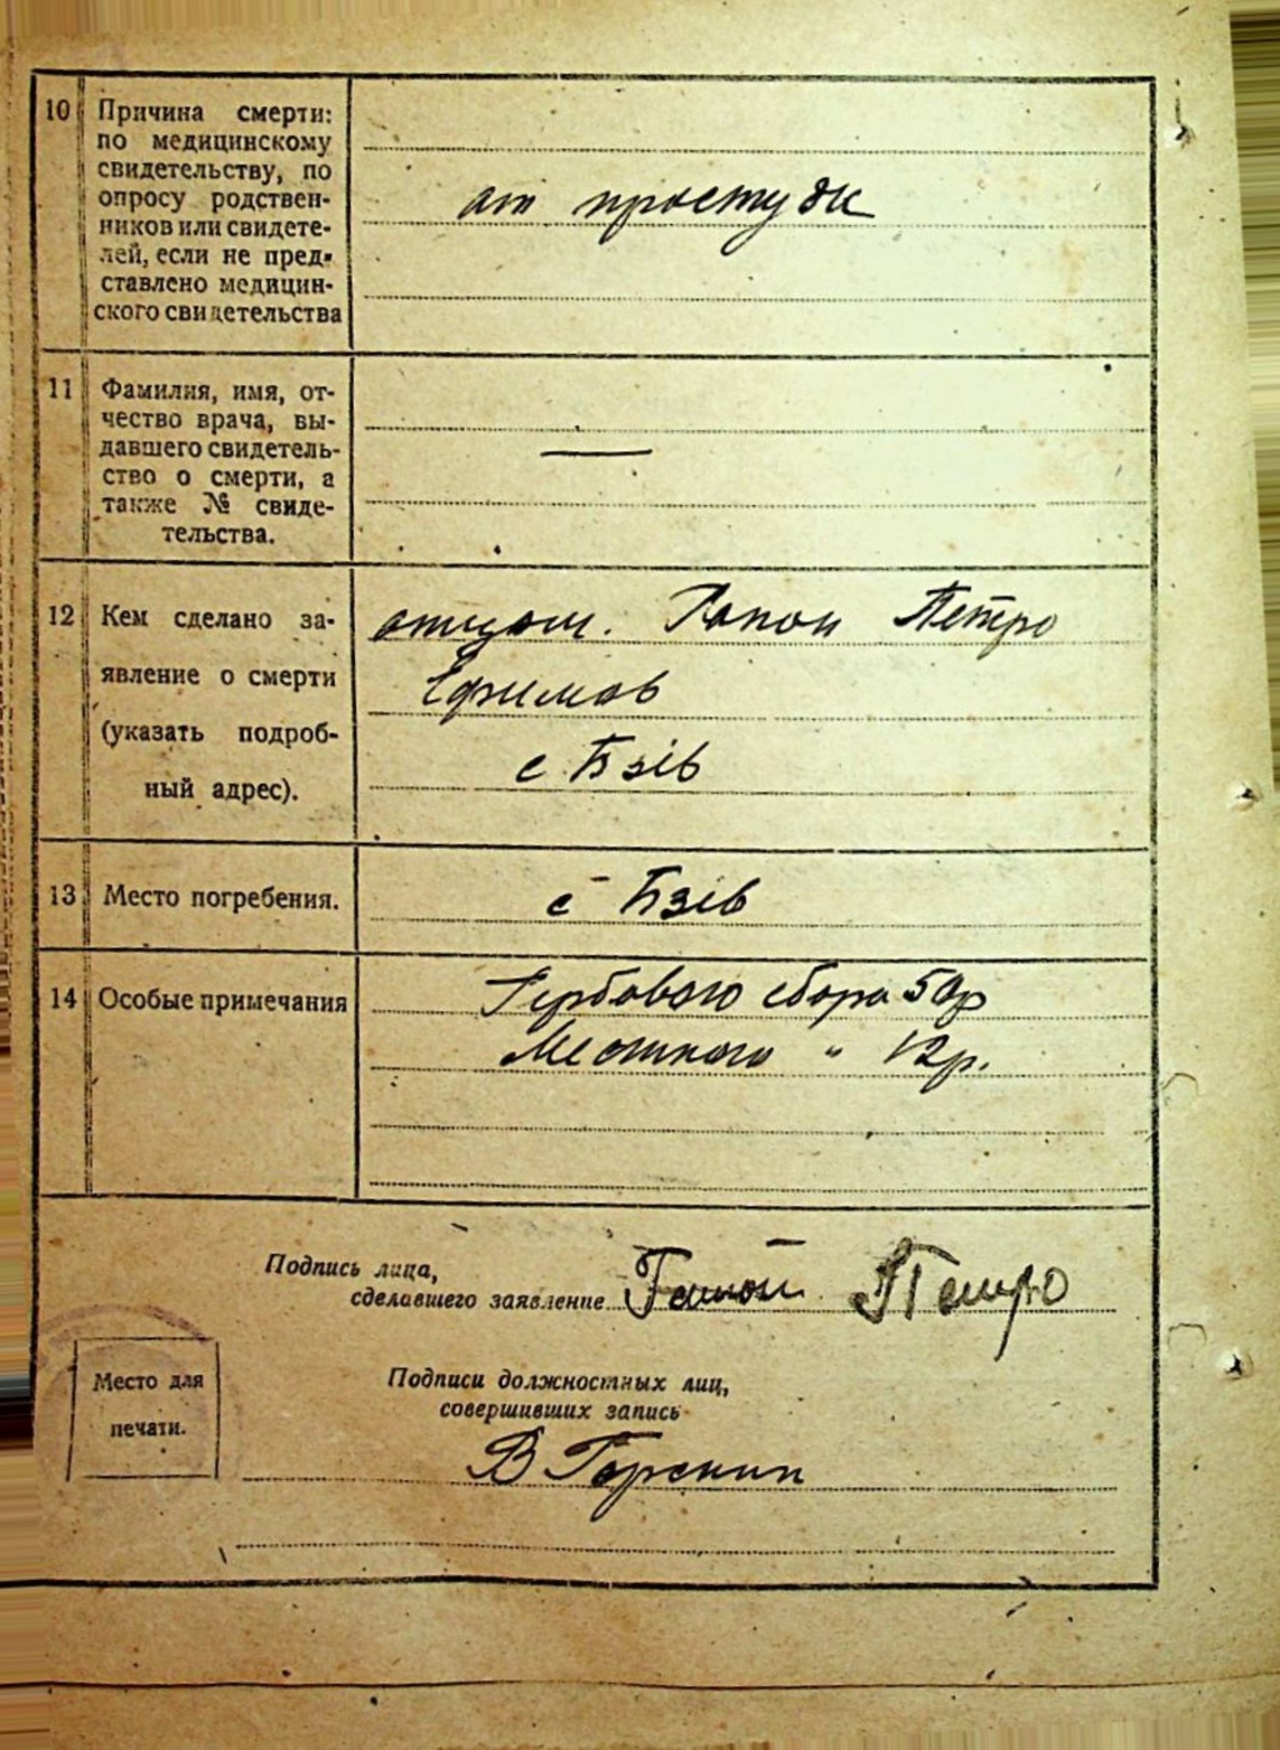 10 Причина смерти:
по медицинскому
свидетельству, по
опросу родствен-
ников или свидете-
лей, если не пред-
ставлено медицин-
ского свидетельства
от простуды
11 Фамилия, имя, от-
чество врача, вы-
давшего свидетель-
ство о смерти, а
также № свиде-
тельства.
—
12 Кем сделано за-
явление о смерти
(указать подроб-
ный адрес).
отцом. Гапон Петро
Ефимов
с Бзів
13 Место погребения.
с Бзів
14 Особые примечания
Гербового сбора 50р
Местного " 12р.
Подпись лица,
сделавшего заявление Гапон Петро
Место для
печати.
Подписи должностных лиц,
совершивших запись
В